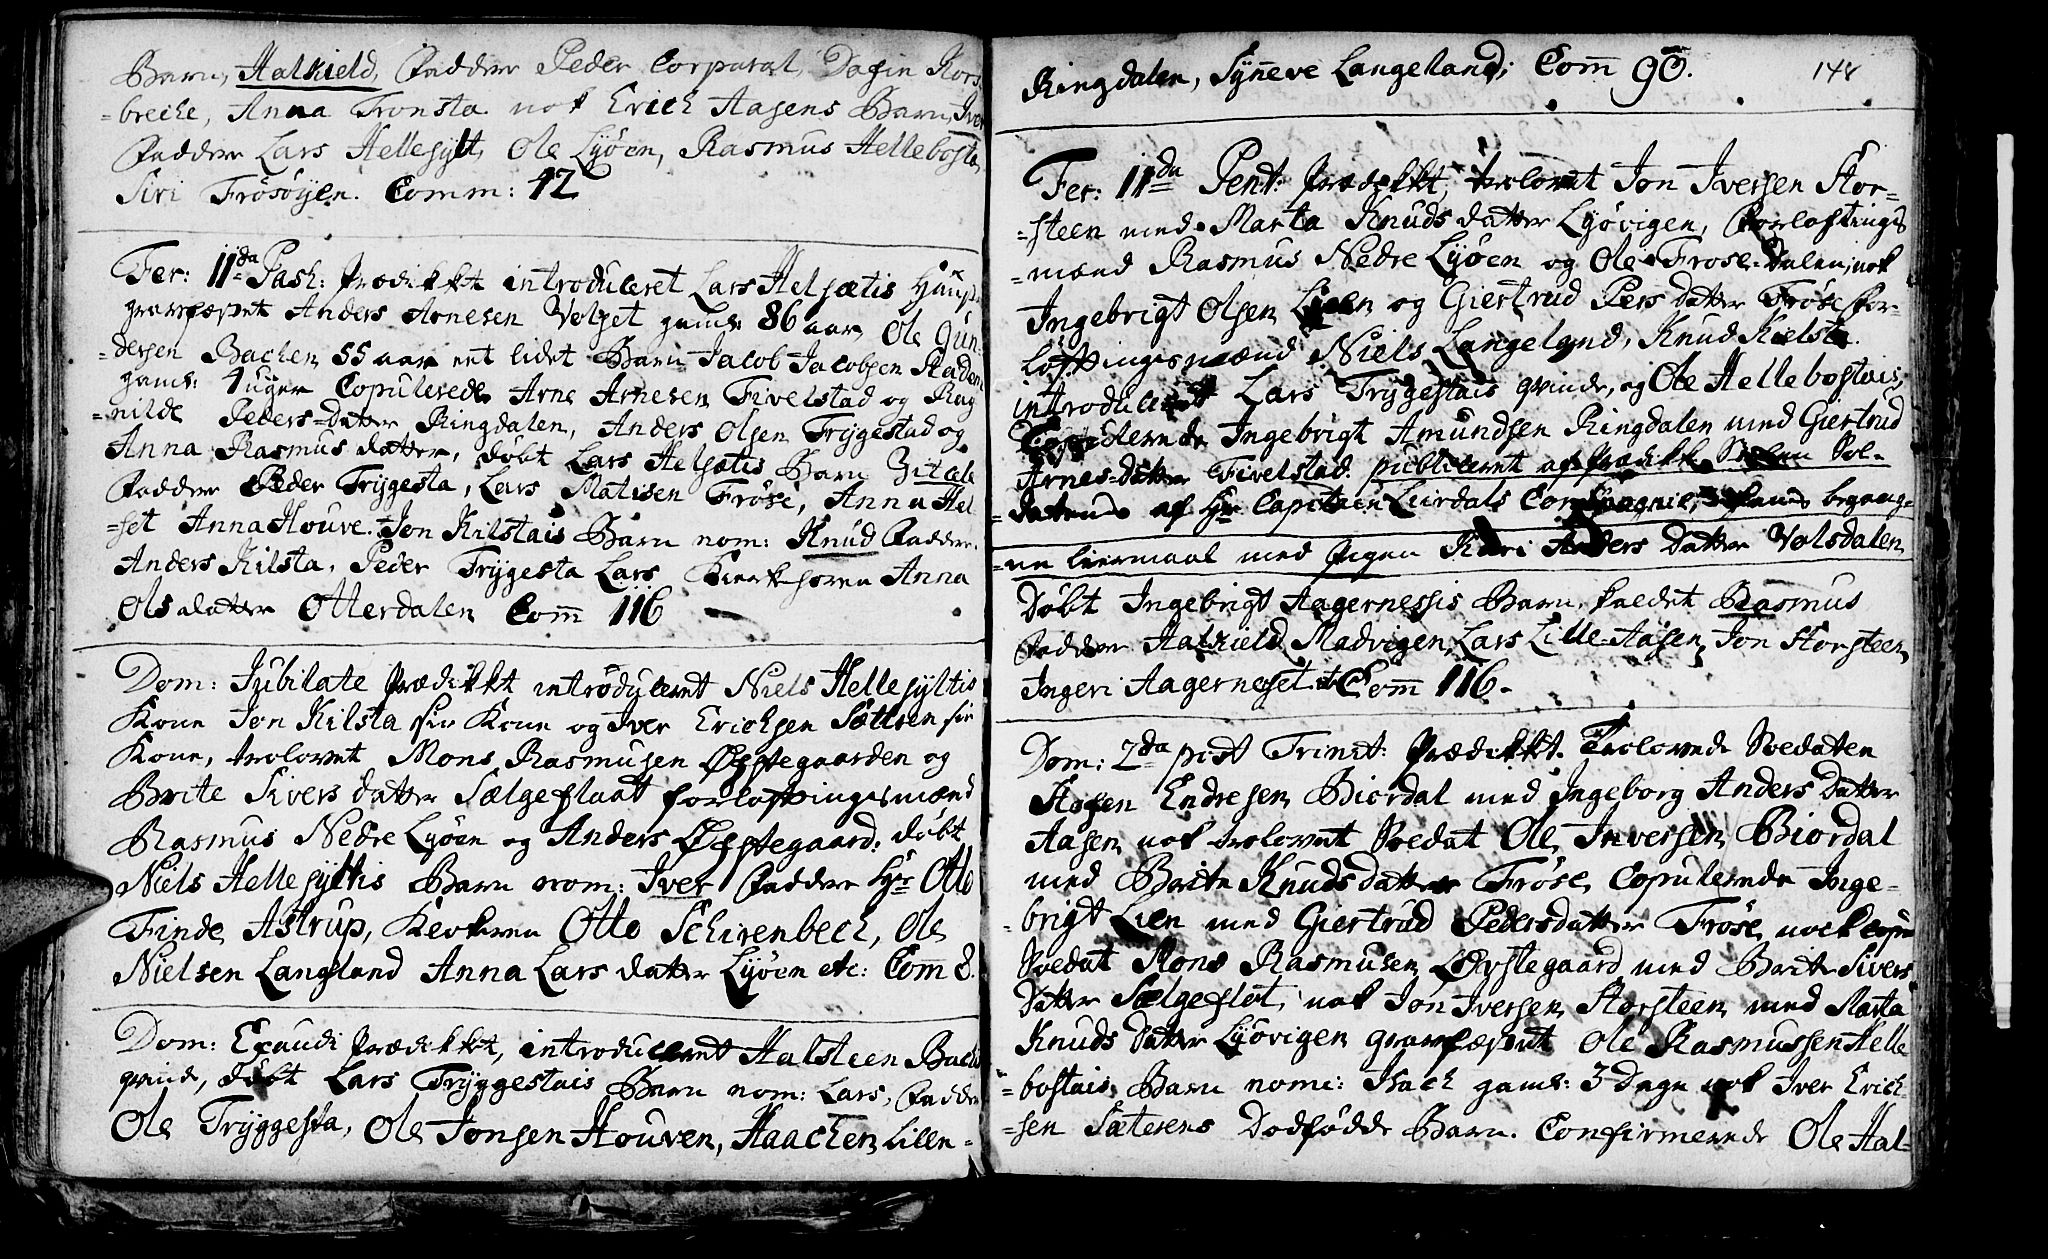 Barn, Halkield, Faddere Peder Corporal, Dagfin Kors-
-breche, Anna Tronsta nok Erich Aasens Barn, Iver
Faddere Lars Hellesylt, Ole Lyøen, Rasmus Hellebosta,
Siri Frøsøyen. Comm: 42
Fer: IIda Pasch: Prædikket introduceret Lars Helsætis
gravfæstet Anders Arnesen Velset gaml: 86 aar, Ole Gun-
-dersen Bachen 55 aar ent lidet Barn Jacob Jacobsen Staden
gaml: 4 uger Copulerede Arne Arnesen Fivelstad og Rag-
-nilde Peders-Datter Ringdalen, Anders Olsen Tryggestad og
Anna Rasmus datter, døbt Lars Helsætis Barn
Faddere Peder Tryggesta, Lars Matisen Frøse, Anna Hel-
-set Anna Houve. Jon Kilstais Barn nom: Knud Faddere
Anders Kilsta, Peder Tryggesta Lars Anna
Ols datter Otterdalen Com 116
Dom: Jubilate Prædikket introduceret Niels Hellesyltis
Kone Jon Kilsta sin Kone og Iver Erichsen Sættren sin
Kone, trolovet Mons Rasmusen Øpstegaarden og
Brite Sivers datter Sælgeflaat forloftingsmænd
Rasmus Nedre Lyøen og Anders Øpstegaard: døbt
Niels Hellesyltis Barn nom: Iver Faddere Hr Otto
Finde Astrup, Otto Schirenbech, Ole
Nielsen Langeland Anna Lars datter Lyøen etc: Com 8.
Dom: Exaudi Prædikket, introduceret Halsteen Bachs
qvinde, døbt Lars Tryggestais Barn nom: Lars, Faddere
Ole Tryggesta, Ole Jonsen Houven, Haachen Lillen-
148
Ringdalen, Syneve Langeland; Com 90.
Fer: IIda Pent: Prædikket, trolovet Jon Iversen Stor-
-steen med Marta Knuds datter Lyøvigen, Forloftings
-mænd Rasmus Nedre Lyøen og Ole Frøse-Dalen, nok
Ingebrigt Olsen Lien og Giertrud Pers datter Frøse For-
loftingsmænd Niels Langeland, Knud Kielsta.
introduceret Lars Tryggestais qvinde, og Ole Hellebostais,
Copulerede Ingebrigt Amundsen Ringdalen med Giertrud
Arnes-Datter Fivelstad. publiceret af Prædike Stolen Sol-
-datens af Hr Capitain Leirdals Compagnie, hans begang-
-ne leiermaal med Pigen Kari Anders Datter Velsdalen
Døbt Ingebrigt Aagernessis Barn, kaldet Rasmus
Faddere Halkield Madvigen, Lars Lille-Aasen, Jon Storsteen,
Ingeri Aagerneset Com 116.
Dom: 2da post Trinit: Prædikket. Trolovede Soldaten
Stofen Endresen Biordal med Ingeborg Anders Datter
Aasen nok trolovet Soldat Ole Inversen Biordal
med Brite Knuds datter Frøse, Copulerede Inge-
-brigt Lien med Giertrud Pedersdatter Frøse nock copu
Soldat Mons Rasmusen Øpstegaard med Brite Sivers
Datter Sælgeflot, nok Jon Iversen Storsteen med Marta
Knuds Datter Lyøvigen gravfæstet Ole Rasmussen Helle
-bostais Barn nomi: Isach gaml: 3 Dage nok Iver Erich-
-sen Sæterens Dødfødde Barn. Confirmerede Ole Hal-